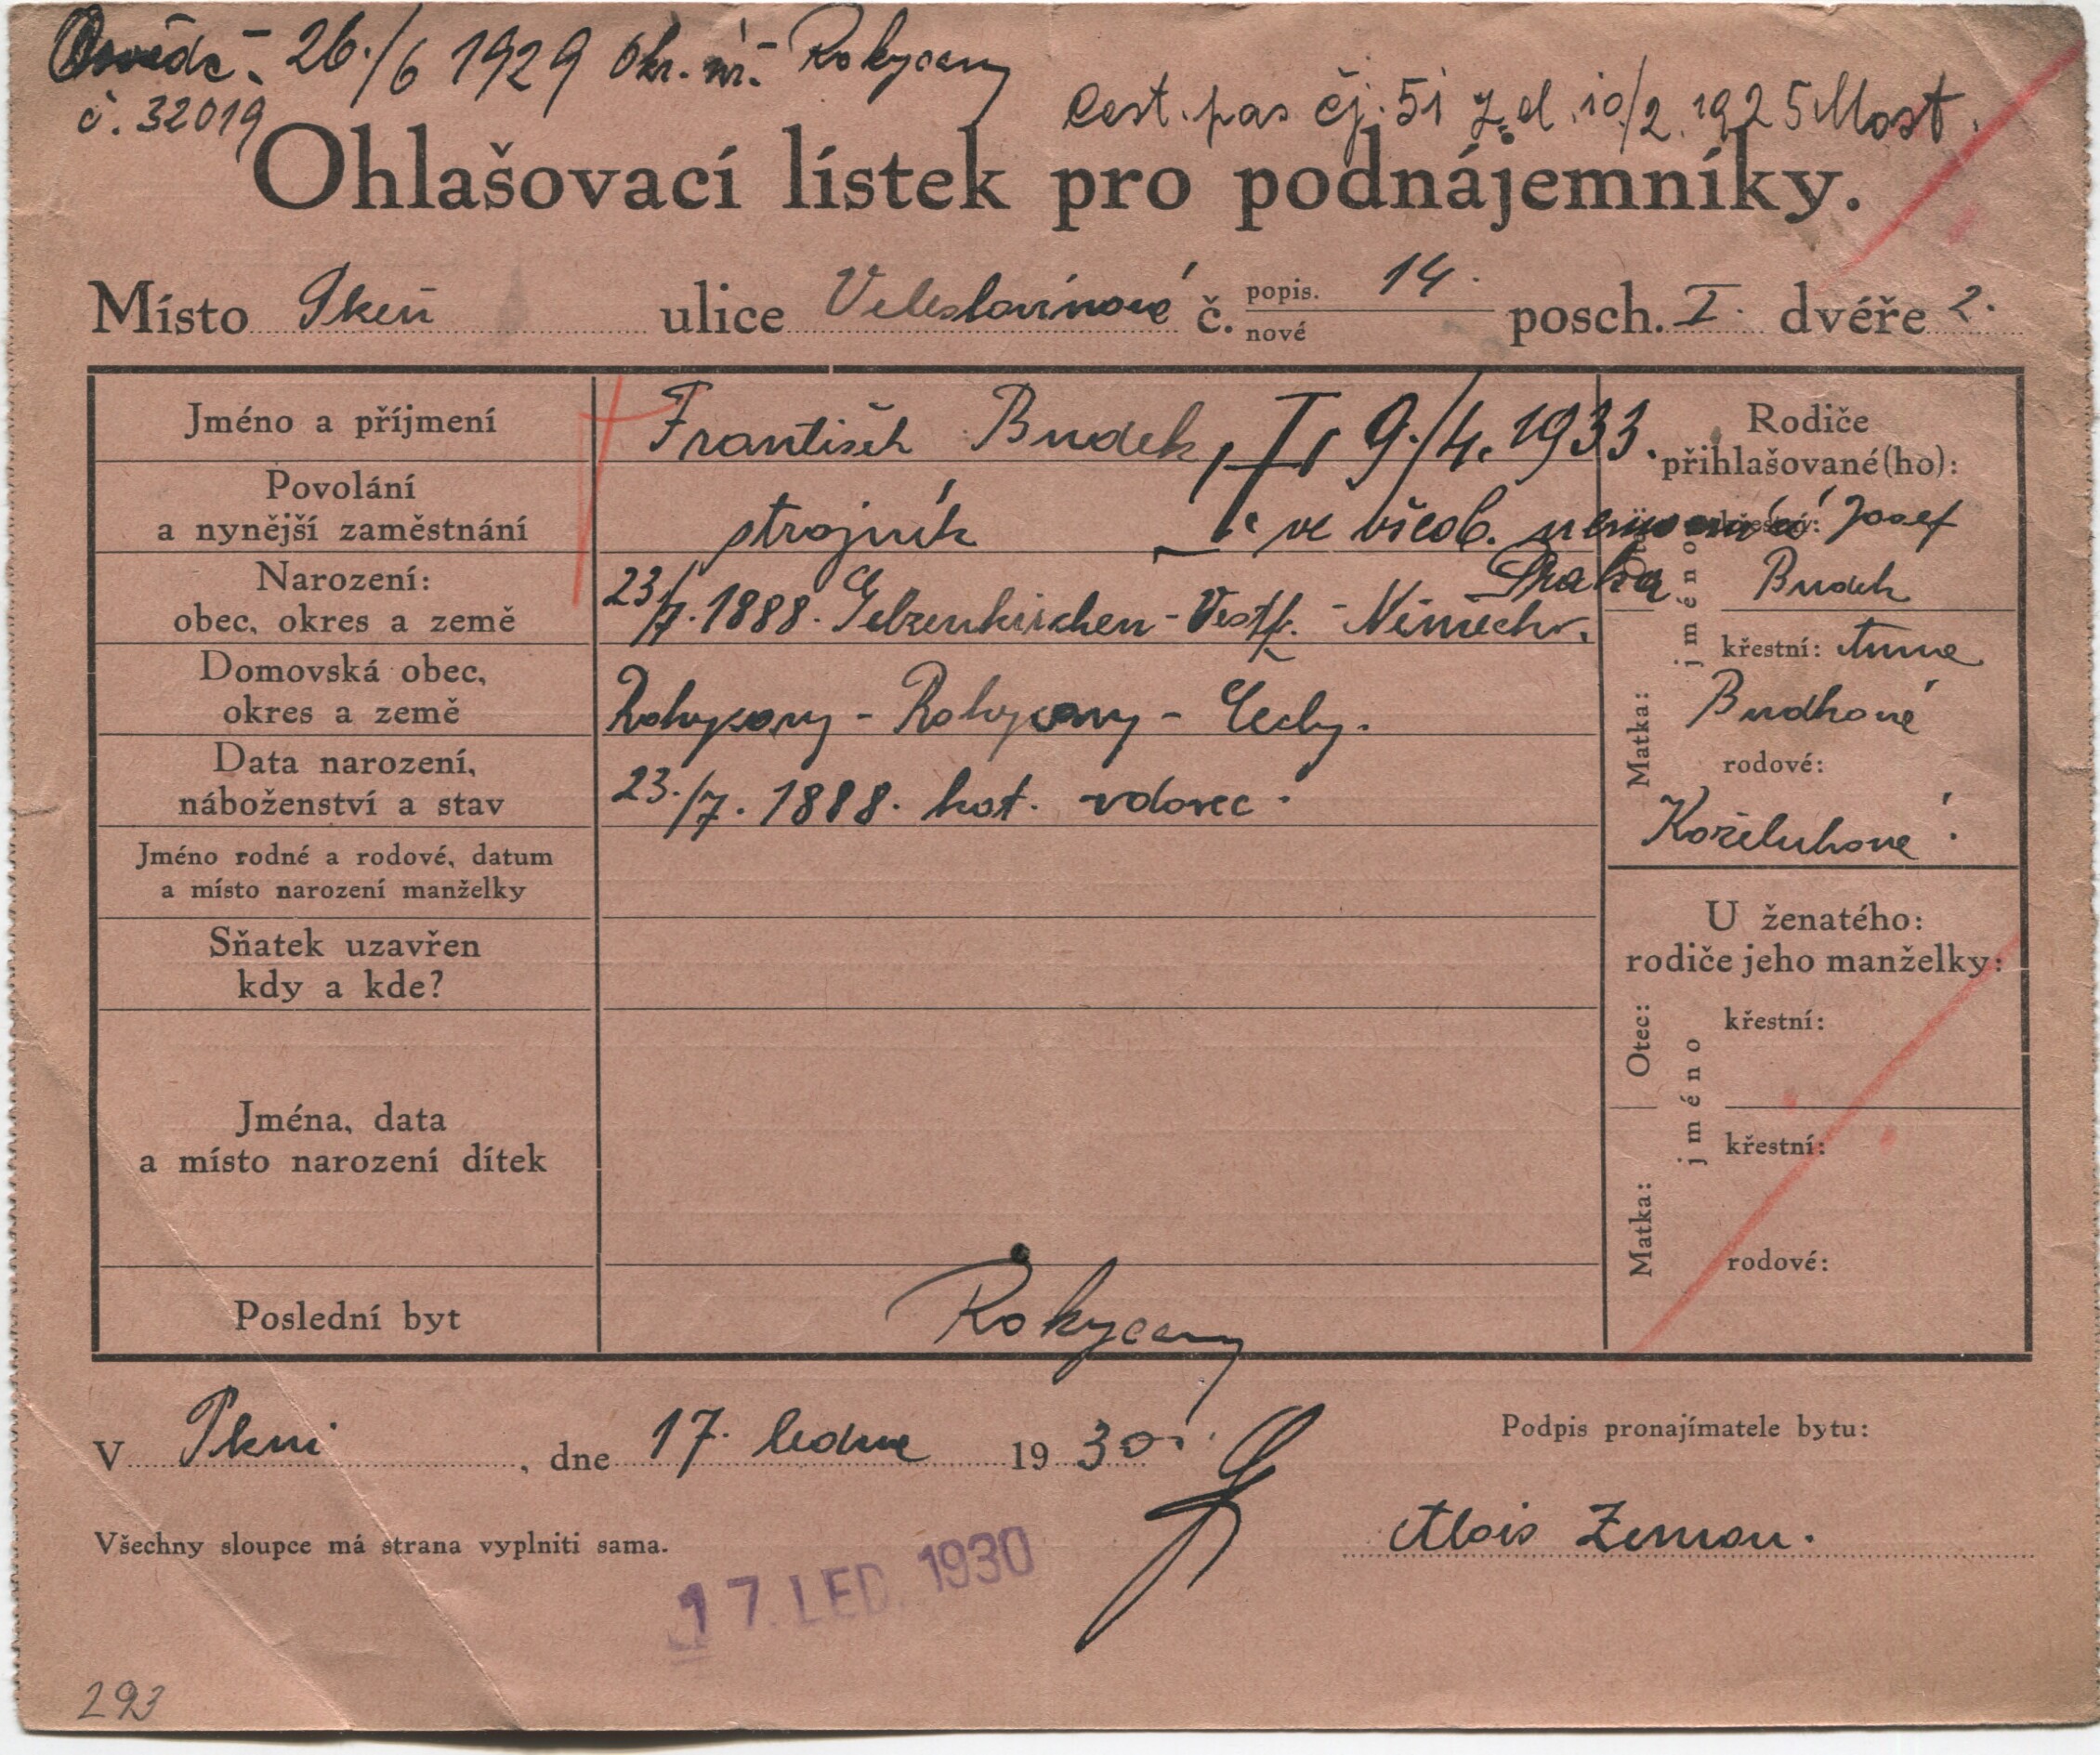 Osvědč. 26./6 1929 Okr. úř. Rokycany
č. 32019
Cest. pas čj. 51 z d. 10/2. 1925 Most.
Ohlašovací lístek pro podnájemníky.
Místo Plzeň ulice Veleslavínová č. popis. nové 14. posch. I. dvéře 2.
Jméno a příjmení František Budek, † 9./4. 1933.
Povolání a nynější zaměstnání strojník ve všeob. nemocnici
Praha
Narození: obec, okres a země 23/7. 1888. Gelzenkirchen - Vestf. - Německ.
Domovská obec, okres a země Rokycany - Rokycany - Čechy.
Data narození, náboženství a stav 23./7. 1888. kat. vdovec.
Jméno rodné a rodové, datum a místo narození manželky
Sňatek uzavřen kdy a kde?
Jména, data a místo narození dítek
Poslední byt Rokycany
Rodiče
přihlašované(ho):
jméno
křestní: Josef
Budek
Matka:
křestní: Anna
Budková
rodové:
Koželuhová.
U ženatého:
rodiče jeho manželky:
Otec:
jméno
křestní:
Matka:
křestní:
rodové:
V Plzni, dne 17. ledna 1930.
Podpis pronajímatele bytu:
Alois Zeman.
Všechny sloupce má strana vyplniti sama.
17. LED. 1930
293